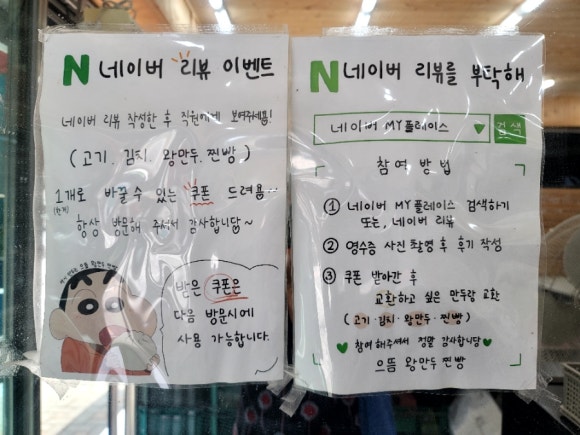 N 네이버 리뷰 이벤트
네이버 리뷰 작성한 후 직원에게 보여주세욤!
( 고기. 김치. 왕만두. 찐빵 )
1개로 바꿀 수 있는 쿠폰 드려욤~
(한개)
항상 방문해 주셔서 감사합니답~
받은 쿠폰은
다음 방문시에
사용 가능합니다.
N 네이버 리뷰를 부탁해
네이버 MY플레이스 검색
참여 방법
① 네이버 MY플레이스 검색하기
또는, 네이버 리뷰
② 영수증 사진 촬영 후 후기 작성
③ 쿠폰 받아간 후
교환하고 싶은 만두랑 교환
( 고기·김치·왕만두·찐빵 )
참여해주셔서 정말 감사합니답
으뜸 왕만두 찐빵